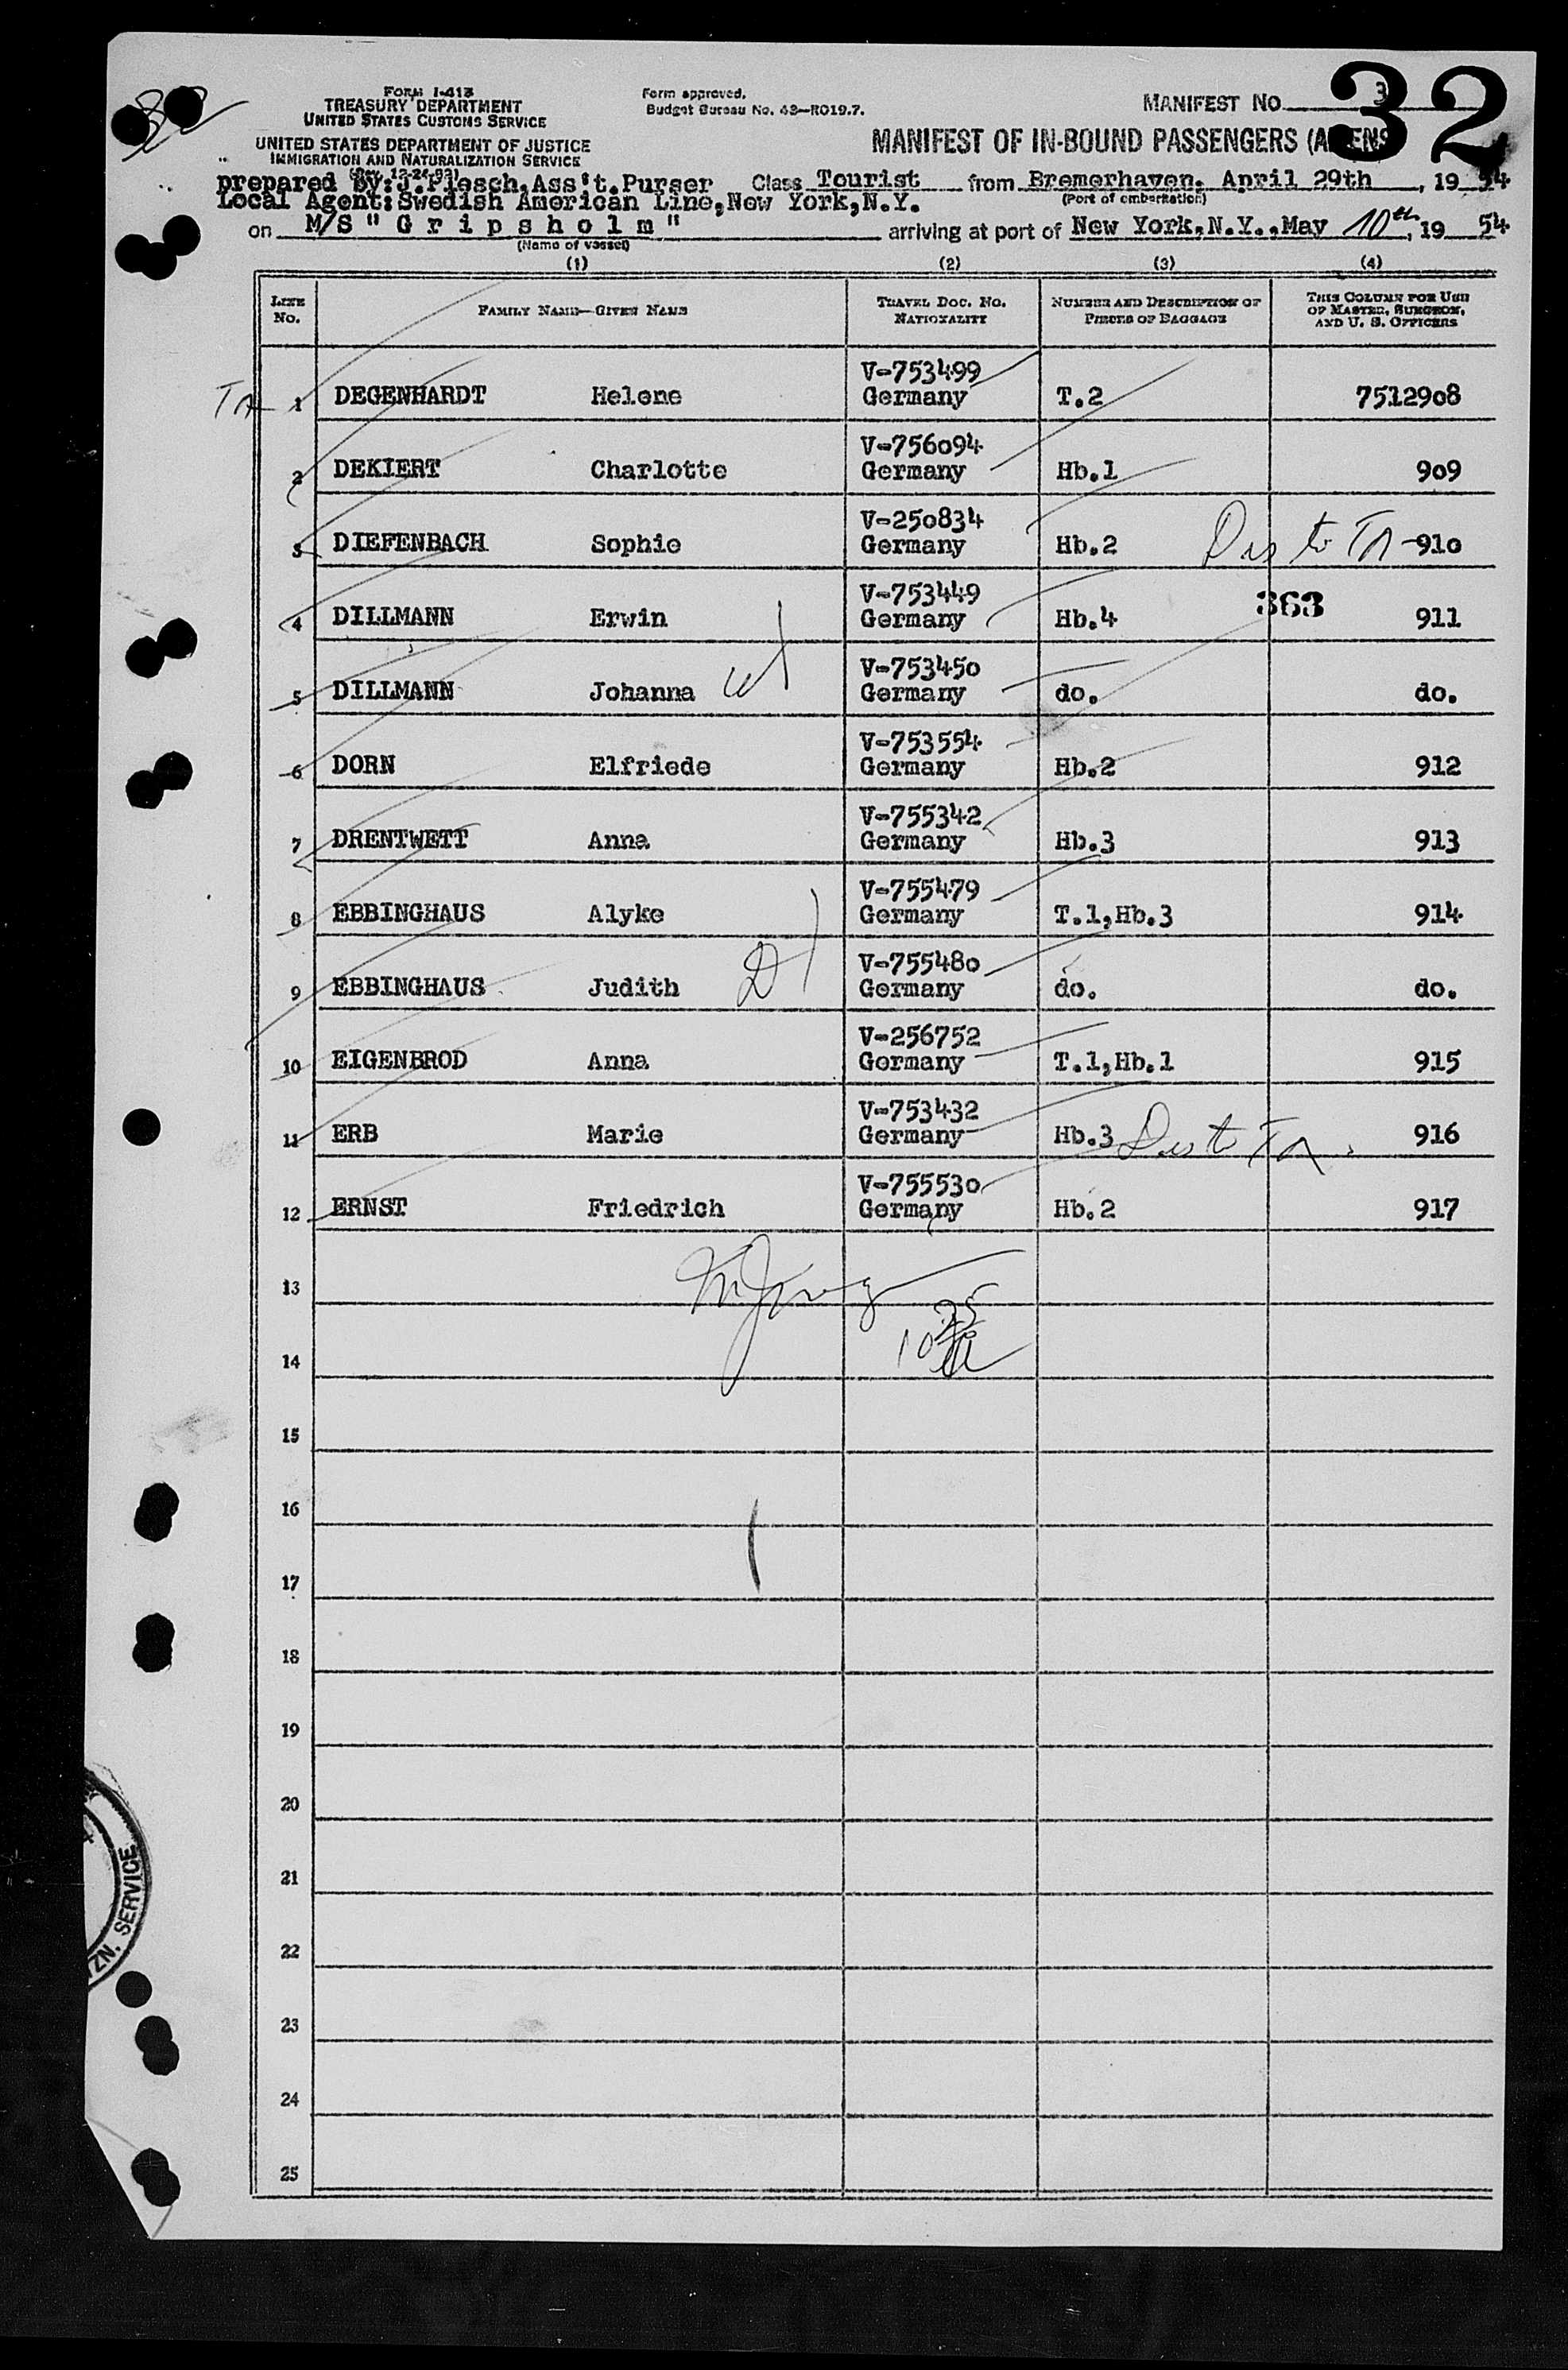 32
FORM I-418
TREASURY DEPARTMENT
UNITED STATES CUSTOMS SERVICE
UNITED STATES DEPARTMENT OF JUSTICE
IMMIGRATION AND NATURALIZATION SERVICE
Form approved.
Budget Bureau No. 43—RO19.7.
MANIFEST NO. 3
32
MANIFEST OF IN-BOUND PASSENGERS
prepared by: J. Plesch, Ass't. Purser Class Tourist from Bremerhaven, April 29th, 19 54
(Port of embarkation)
Local Agent: Swedish American Line, New York, N.Y.
on M/S "G r i p s h o l m" arriving at port of New York, N.Y., May 10th, 19 54
(Name of vessel)
(1) (2) (3) (4)
LINE No. FAMILY NAME—GIVEN NAME TRAVEL DOC. NO. NATIONALITY NUMBER AND DESCRIPTION OF PIECES OF BAGGAGE THIS COLUMN FOR USE OF MASTER, SURGEON, AND U. S. OFFICERS
V-753499
TA 1 DEGENHARDT Helene Germany T.2 7512908
V-756094
2 DEKIERT Charlotte Germany Hb.1 909
V-250834
3 DIEFENBACH Sophie Germany Hb.2 TA 910
V-753449 363
4 DILLMANN Erwin Germany Hb.4 911
V-753450
5 DILLMANN Johanna Germany do. do.
V-753554
6 DORN Elfriede Germany Hb.2 912
V-755342
7 DRENTWETT Anna Germany Hb.3 913
V-755479
8 EBBINGHAUS Alyke Germany T.1,Hb.3 914
V-755480
9 EBBINGHAUS Judith D Germany do. do.
V-256752
10 EIGENBROD Anna Germany T.1,Hb.1 915
V-753432
11 ERB Marie Germany Hb.3 TA 916
V-755530
12 ERNST Friedrich Germany Hb.2 917
13
14
15
16
17
18
19
20
21
22
23
24
25
TZN. SERVICE